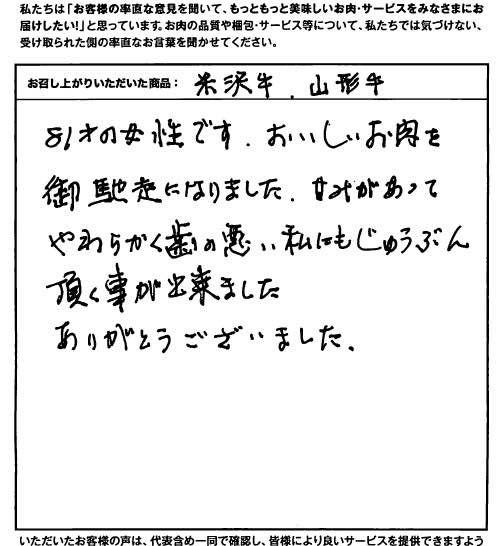 私たちは「お客様の率直な意見を聞いて、もっともっと美味しいお肉・サービスをみなさまにお
届けしたい!」と思っています。お肉の品質や梱包・サービス等について、私たちでは気づけない、
受け取られた側の率直なお言葉を聞かせてください。
お召し上がりいただいた商品： 米沢牛、山形牛
81才の女性です. おいしいお肉を
御馳走になりました. 甘みがあって
やわらかく歯の悪い私にもじゅうぶん
頂く事が出来ました
ありがとうございました.
いただいたお客様の声は、代表含め一同で確認し、皆様により良いサービスを提供できますよう